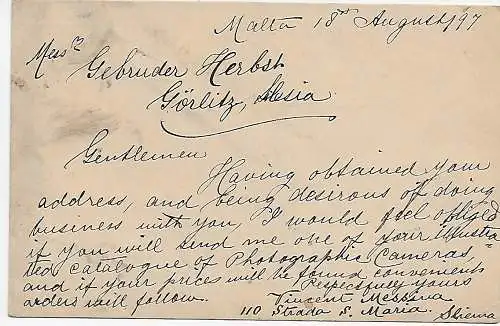 Malta 18th August/97
Messrs
Gebruder Herbst
Görlitz, Silesia
Gentlemen
Having obtained your
address, and being desirous of doing
business with you, I would feel obliged
if you will send me one of your Illustra-
ted catalogue of Photographic Cameras,
and if your prices will be found convenients
orders will follow. Respectfully yours
Vincent Messina
110 Strada S. Maria.
Sliema